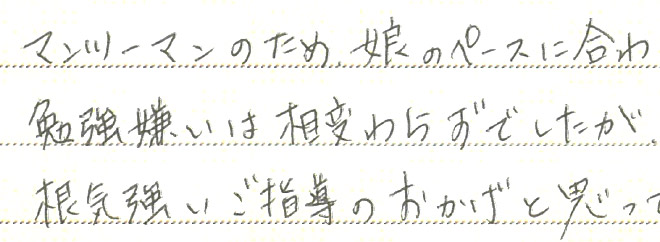 マンツーマンのため、娘のペースに合わ
勉強嫌いは相変わらずでしたが、
根気強いご指導のおかげと思って